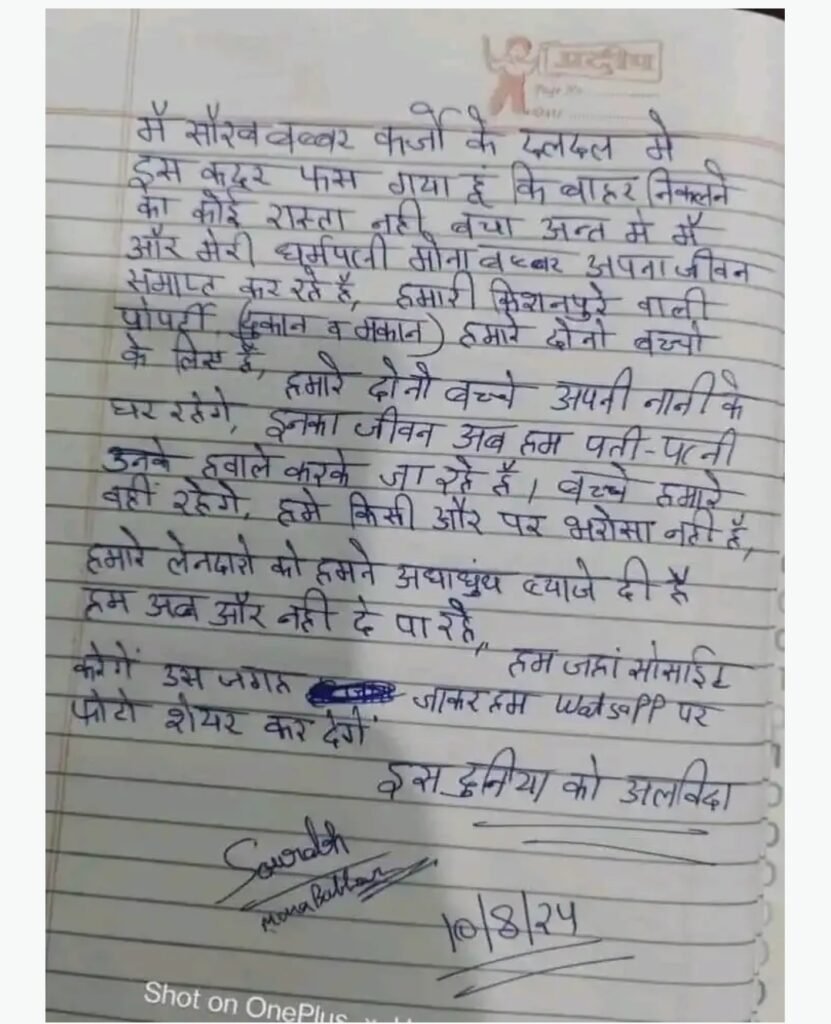 प्रदीप
Page No.
Date
मै सौरव बब्बर कर्जो के दलदल मे
इस कदर फस गया हूं कि बाहर निकलने
का कोई रास्ता नही बचा अन्त मे मैं
और मेरी धर्मपत्नी मोना बब्बर अपना जीवन
समाप्त कर रहे है, हमारी किशनपुरे वाली
प्रोपर्टी (दुकान व मकान) हमारे दोनो बच्चो
के लिए है, हमारे दोनो बच्चे अपनी नानी के
घर रहेगे, इनका जीवन अब हम पती-पत्नी
उनके हवाले करके जा रहे है। बच्चे हमारे
वहीं रहेगे, हमे किसी और पर भरोसा नही है,
हमारे लेनदारो को हमने अधाधुंध ब्याजे दी है
हम अब और नही दे पा रहे,, हम जहां सोसाईट
करेगें उस जगह जाकर हम Watsapp पर
फोटो शेयर कर देगें
इस दुनिया को अलविदा
Sourabh
Mona Babbar
10/8/24
Shot on OnePlus